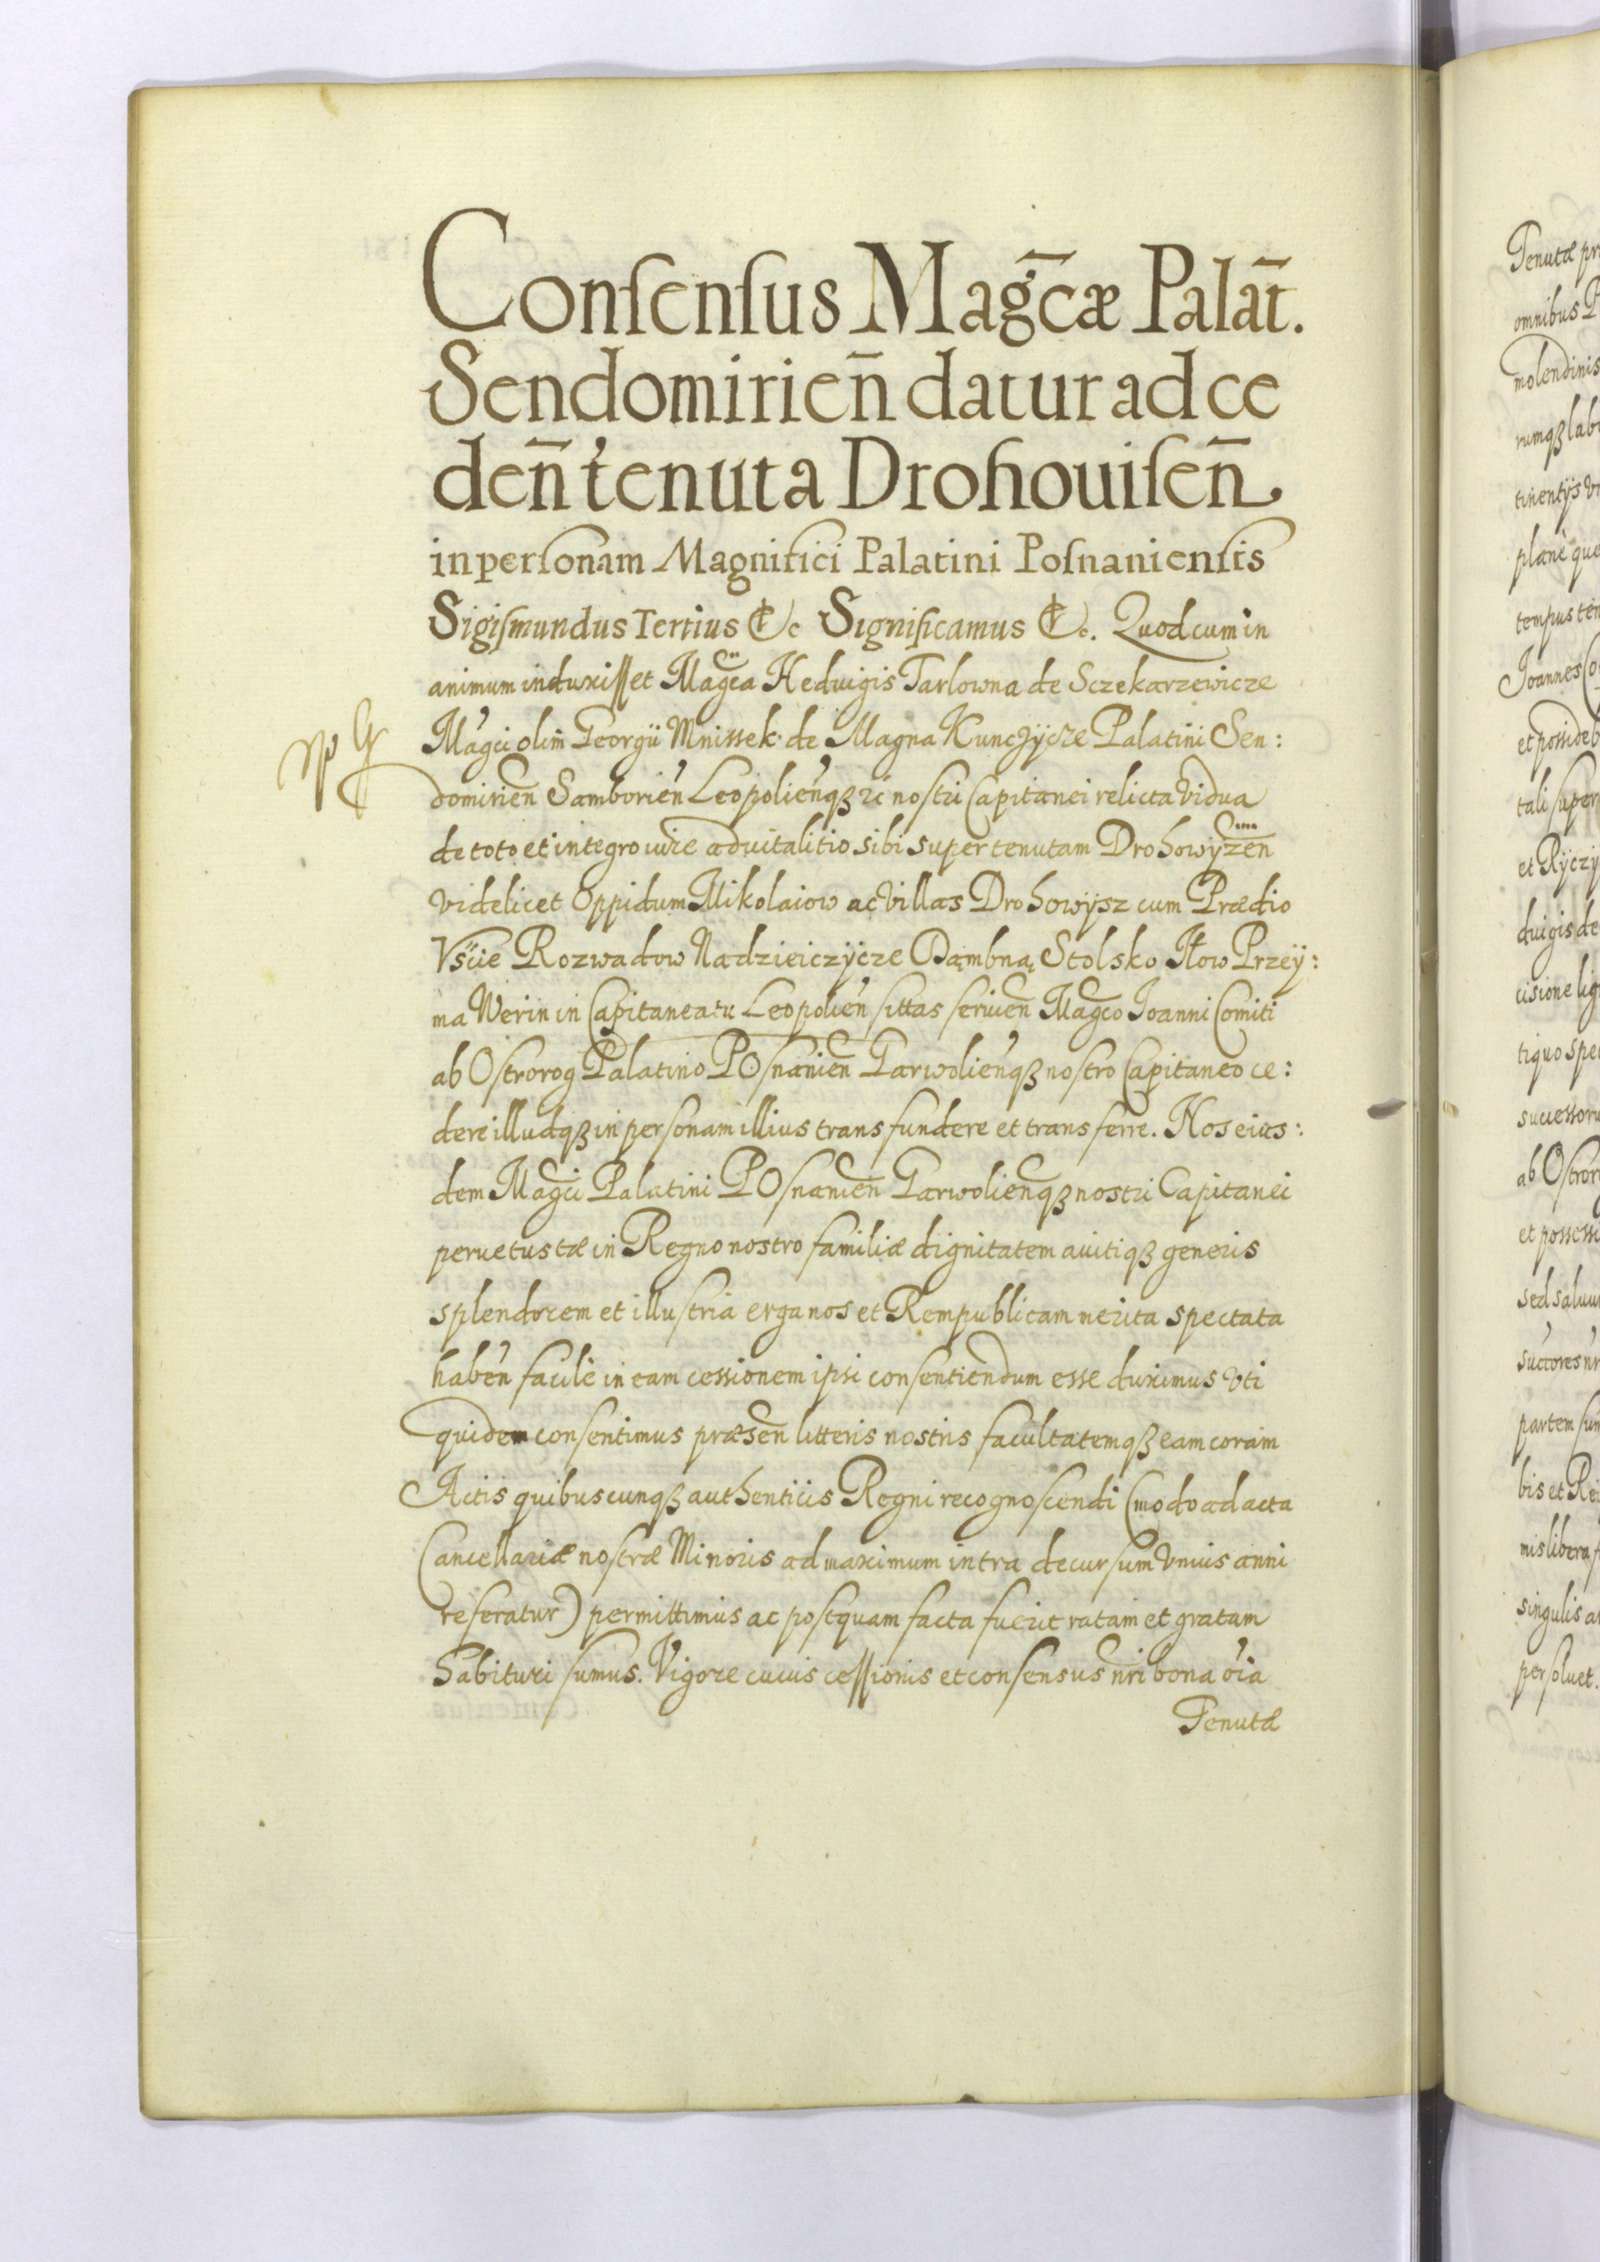 Conſenſus Mag̃cæ Palat̃.
Sendomirieñ datur ad ce
deñ tenuta Drohouiſeñ
in perſonam Magnifici Palatini Poſnanienſis
Sigiſmundus Tertius &c Significamus &c. Quod cum in
animum induxiſſet Magca Heduigis Tarlowna de Sczekarzewicze
Magci olim Georgii Mnissek de Magna Kunczÿcze Palatini Sen:
domirien Samborien Leopolienqȝ &c nostri Capitanei relicta Vidua
de toto et integro iure aduitalitio sibi super tenutam Drohowÿzen
videlicet Oppidum Mikolaiow ac Villas Drohowÿsz cum Prædio
Vscie Rozwadow Nadzieiczÿcze Dąmbną Stolsko Iłow Przeÿ:
ma Werin in Capitaneatu Leopolien sittas serwien Magco Joanni Comiti
ab Ostrorog Palatino Posnanien Garwolienqȝ nostro Capitaneo ce:
dere illudqȝ in personam illius transfundere et transferre. Nos eius:
dem Magci Palatini Posnanien Garwolienqȝ nostri Capitanei
peruetustæ in Regno nostro familiæ dignitatem auitiqȝ generis
splendorem et illustria erga nos et Rempublicam merita spectata
haben facile in eam cessionem ipsi consentiendum esse duximus vti
quidem consentimus præsen litteris nostris facultatemqȝ eam coram
Actis quibuscunqȝ authenticis Regni recognoscendi (modo ad acta
Cancellariæ nostræ Minoris ad maximum intra decursum vnius anni
referatur) permittimus ac postquam facta fuerit ratam et gratam
habituri sumus. Vigore cuius ceſſionis et consensus nri bona oia
Tenutæ
Tenutæ
omnibus
molendinis
tinentijs
plane
Joannes
et
tali super
et
duigis de
cisione
tiquo
ab
et
sed
partem
bis et
mis libera
singulis
persoluet.